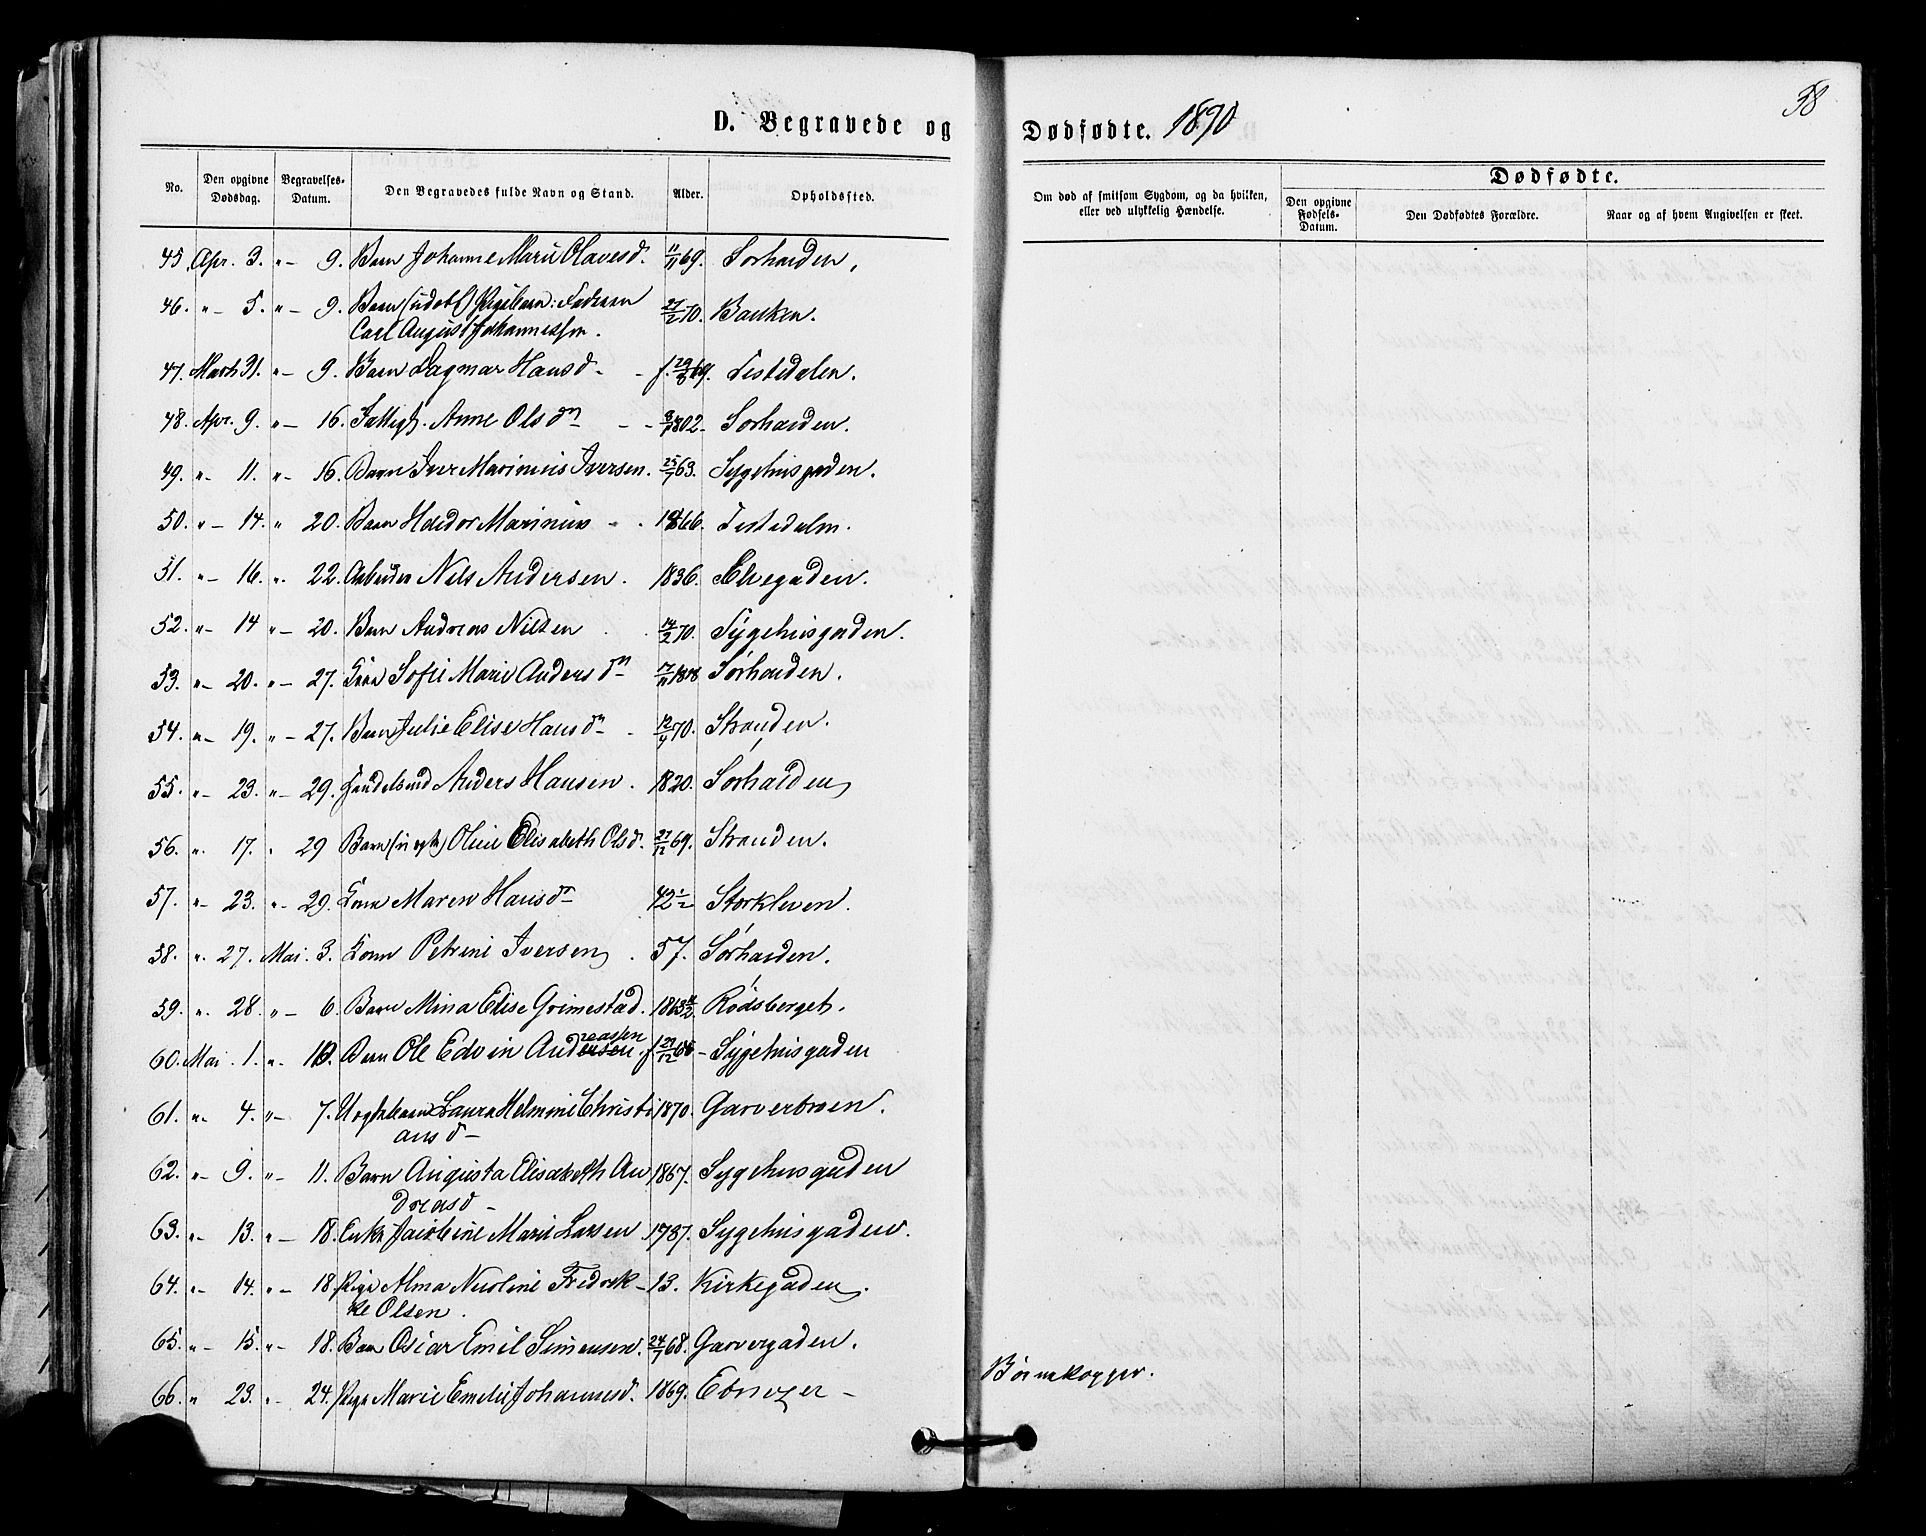 38
D. Begravede og Dødfødte. 1870
No.
Den opgivne Dødsdag.
Begravelses-Datum.
Den Begravedes fulde Navn og Stand.
Alder.
Opholdssted.
Om død af smitsom Sygdom, og da hvilken, eller ved ulykkelig Hændelse.
Dødfødte.
Den opgivne Fødsels-Datum.
Den Dødfødtes Forældre.
Naar og af hvem Angivelsen er skeet.
45. Apr. 3. " – 9. Barn Johanne Marie Olavesd. 11/11 69. Sørhalden.
46. " – 5. " – 9. Barn (udøbt) Pigebarn: Faderen
Carl August Johannessen. 27/2 70. Banken.
47. Marts 31. " – 9. Barn Dagmar Hansd – f. 29/8 69. Tistedalen.
48. Apr. 9. " – 16. Fattigl. Anne Olsdn – 1802. Sørhalden.
49. " – 11. " – 16. Barn Iver Marinius Iversen. 25/7 63. Sygehusgaden.
50. " – 14. " 20. Barn Halidor Marinius 1866. Tistedalen.
51. " – 16. " 22. Arbeider Nils Andersen. 1836. Elvegaden.
52. " – 14 " – 20. Barn Andreas Nilsen 14/2 70. Sygehusgaden.
53. " – 20. " – 27. Kone Sofie Marie Andersdn 17/11 1818 Sørhalden.
54. " – 19. " – 27. Barn Julie Elise Hansdn 12/4 70. Stranden.
55. " – 23. " – 29. Handelsmd Anders Hansen. 1820. Sørhalden
56. " 17. " 29 Barn (uægte) Oline Elisabeth Olsd. 27/12 69. Stranden.
57. " – 23. " – 29. Kone Maren Hansdn 42 1/2 Storkleven.
58. " 27. Mai 3. Kone Petrine Iversen. 57. Sørhalden.
59. " 28. " – 6. Barn Mina Elise Grimestad. 1863 Rødsberget.
60. Mai 1. " 10. Barn Ole Edvin Andreasen. f. 29/12 66 – Sygehusgaden
61. " 4. " – 7. Uægte barn Laura Helmine Christi
ansd – 1870. Garverbroen.
62. " – 9. " – 11. Barn Augusta Elisabeth An
dreasd – 1867. Sygehusgaden
63. " – 13. " – 18. Enke Jacobine Marie Larsen 1787. Sygehusgaden.
64. " – 14. " – 18. Pige Alma Nicoline Fredrik–
ke Olsen. 13. Kirkegaden.
65. " – 15. " – 18. Barn Oscar Emil Simensen. 24/7 68. Garvergaden.
66. " 23. " – 24. Pige Marie Emelie Johannesd. 1869. Ebnezer – Børnekopper.